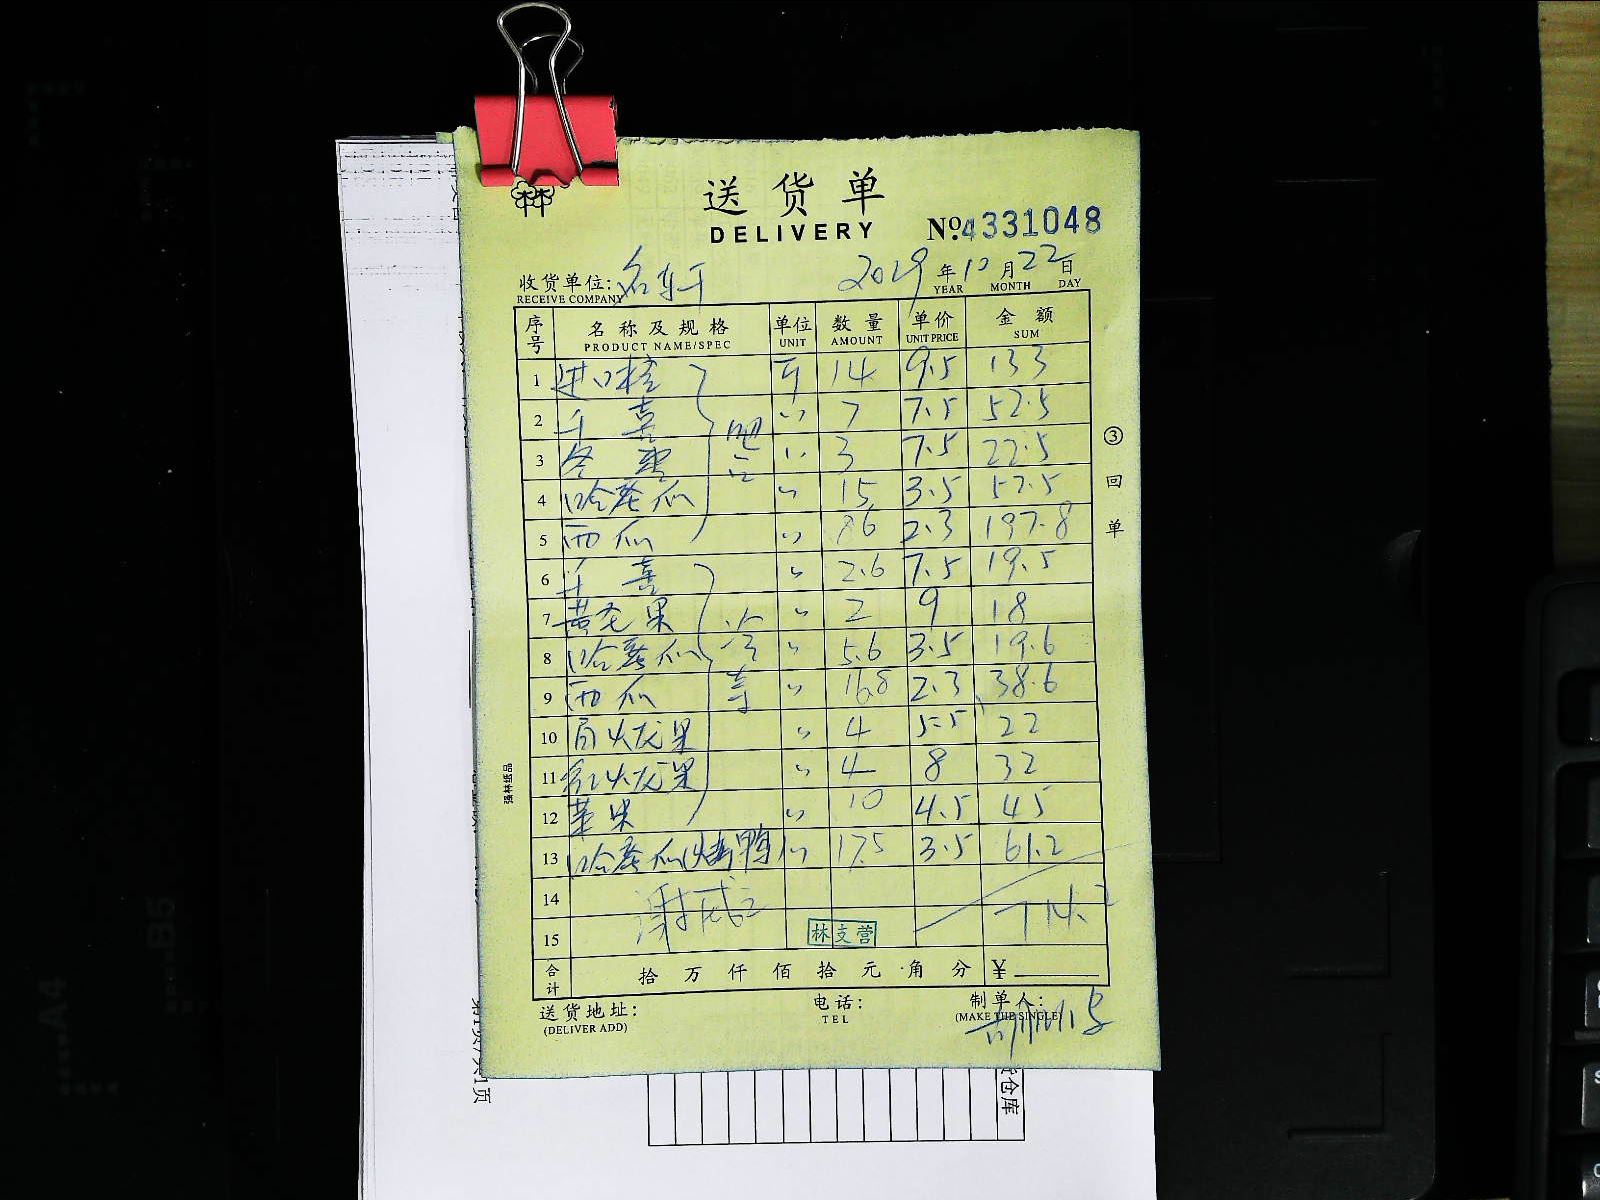 送货单
DELIVERY
No.4331048
收货单位:名轩
RECEIVE COMPANY
2019年10月22日
YEAR MONTH DAY
序号 名称及规格 单位 数量 单价 金额
PRODUCT NAME/SPEC UNIT AMOUNT UNIT PRICE SUM
1 进口橙 斤 14 9.5 133
2 千喜 〃 7 7.5 52.5
3 冬枣 〃 3 7.5 22.5
4 哈密瓜 〃 15 3.5 52.5
5 西瓜 〃 86 2.3 197.8
吧台
6 千喜 〃 2.6 7.5 19.5
7 黄毛果 〃 2 9 18
8 哈密瓜 〃 5.6 3.5 19.6
9 西瓜 〃 16.8 2.3 38.6
10 白火龙果 〃 4 5.5 22
11 红火龙果 〃 4 8 32
12 苹果 〃 10 4.5 45
13 哈密瓜(烤鸭) 〃 17.5 3.5 61.2
14
15 714.2
林支营
合计 拾万仟佰拾元角分 ¥
送货地址: 电话: 制单人:
(DELIVER ADD) TEL (MAKE THE SINGLE)
③回单
强林纸品
仓库